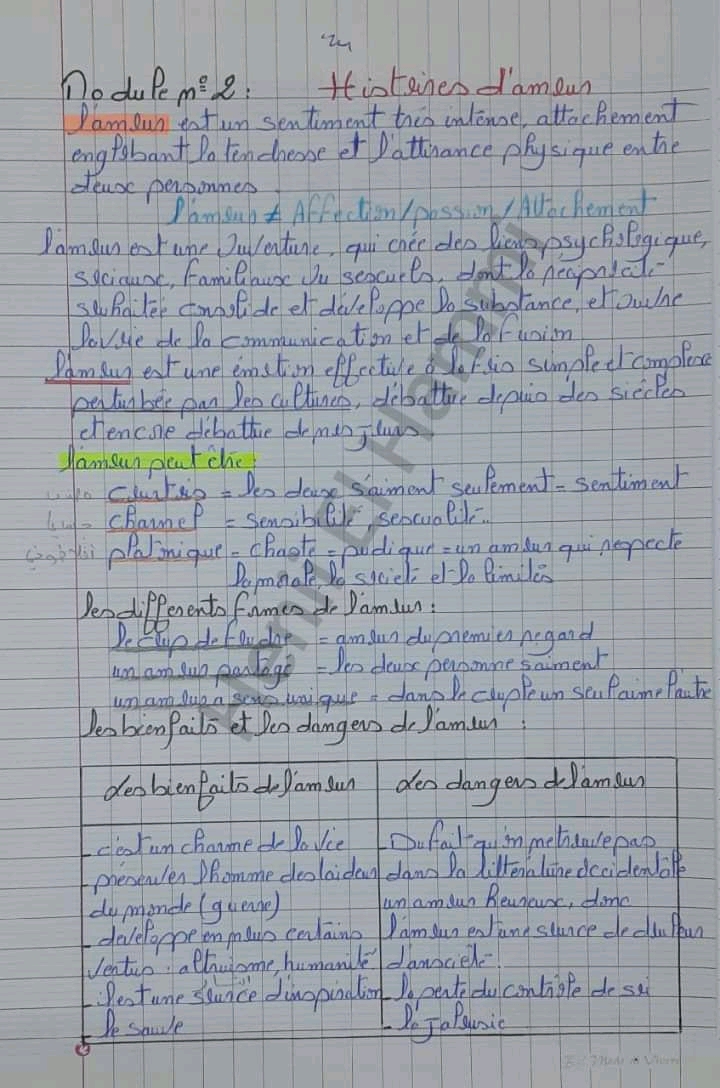 Module n° 2 : Histoires d'amour
l'amour est un sentiment très intense, attachement
englobant la tendresse et l'attirance physique entre
deux personnes
l'amour ≠ Affection/passion/Attachement
l'amour est une ouverture, qui crée des liens psychologique,
sociaux, familiaux ou sexuels, dont la réciprocité
souhaitée consolide et développe la substance, et ouvre
la voie de la communication et de la fusion
l'amour est une émotion effective à la fois simple et complexe
perturbée par les cultures, débattue depuis des siècles
et encore débattue de nos jours.
l'amour peut être :
courtois = les deux s'aiment seulement = sentiment
charnel = sensibilité, sexualité..
platonique = chaste = pudique = un amour qui respecte
la morale, la société et la limites
les differents formes de l'amour :
le coup de foudre = amour du premier regard
un amour partagé = les deux personne s'aiment
un amour a sens unique = dans le couple un seul aime l'autre
les bienfaits et les dangers de l'amour :
des bienfaits de l'amour
- c'est un charme de la vie
- préserver l'homme des laideurs
du monde (guerre)
- développe en nous certains
vertus : altruisme, humanité
- il est une source d'inspiration
- le sauve
des dangers de l'amour
- Du fait qu'on ne trouve pas
dans la littérature occidentale
un amour heureux, donc
l'amour est une source de douleur
d'anxiété.
- la perte du contrôle de soi
- la jalousie
Henri El Hammi